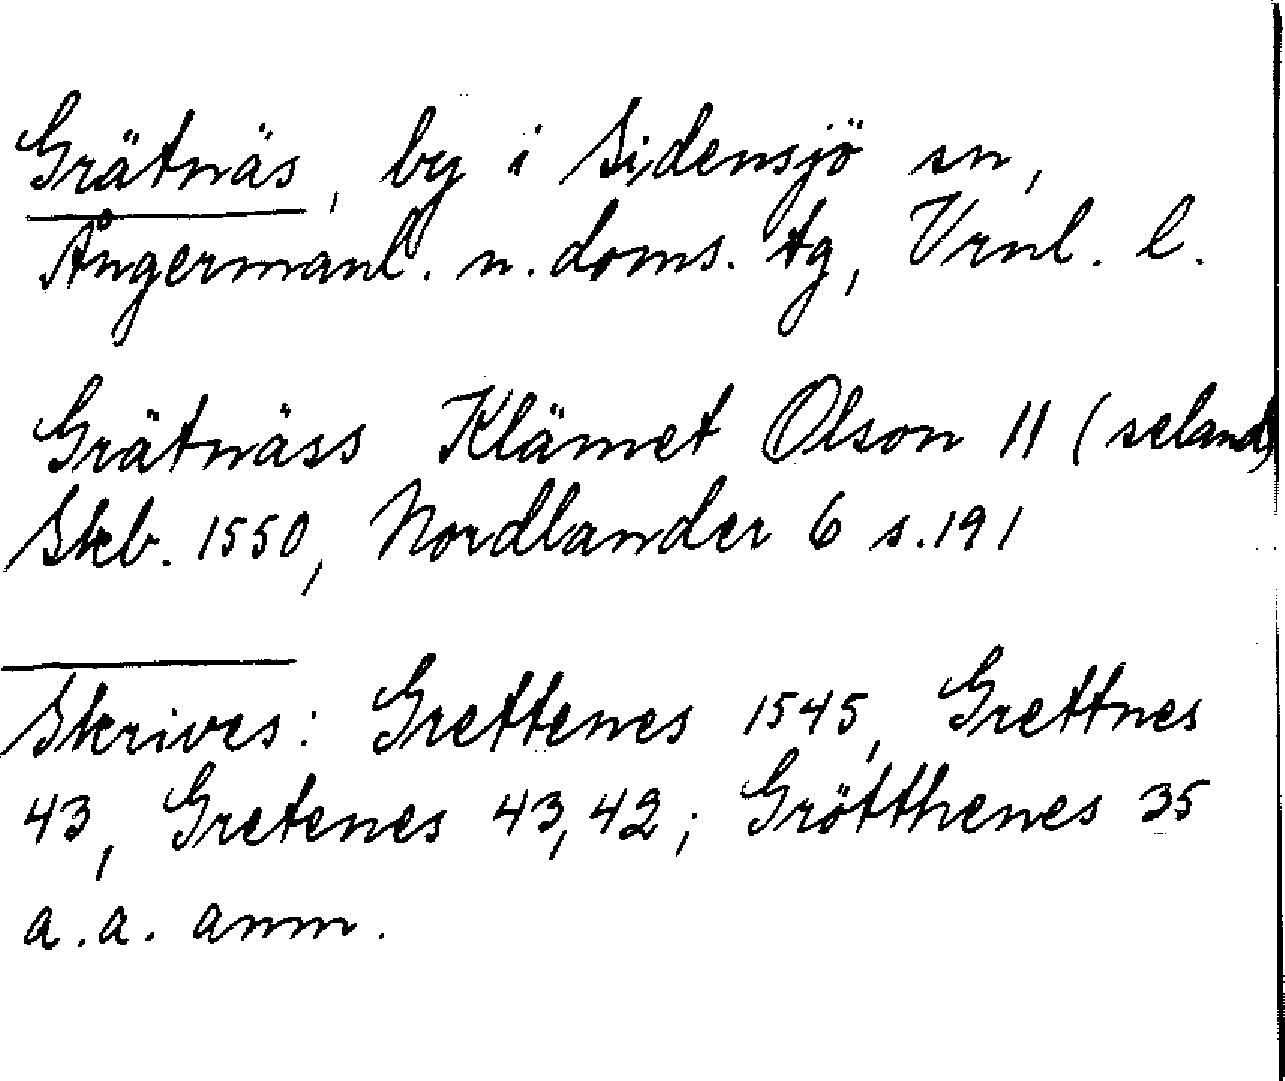 Grätnäs, by i Sidensjö sn,
Ångermanl. n. doms. tg, Vrnl. l.
Grätnäss Klämet Olson 11 (seland)
Skb. 1550, Nordlander 6 s. 191
Skrives: Grettenes 1545, Grettnes
43, Gretenes 43, 42; Grötthenes 35
a.a. anm.